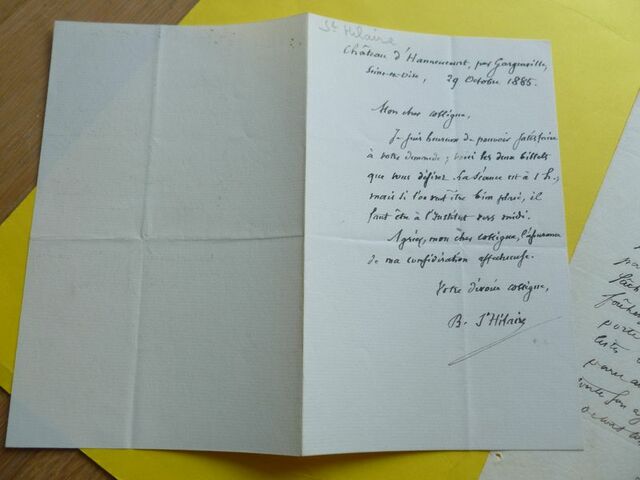 St Hilaire
Château d'Hanneucourt, par Gargenville,
Seine-et-Oise, 29 Octobre 1885.
Mon cher collègue,
Je suis heureux de pouvoir satisfaire
à votre demande; voici les deux billets
que vous désirez. La séance est à 1 h.,
mais si l'on veut être bien placé, il
faut être à l'Institut vers midi.
Agréez, mon cher collègue, l'assurance
de ma considération affectueuse.
Votre dévoué collègue,
B. St Hilaire
porte